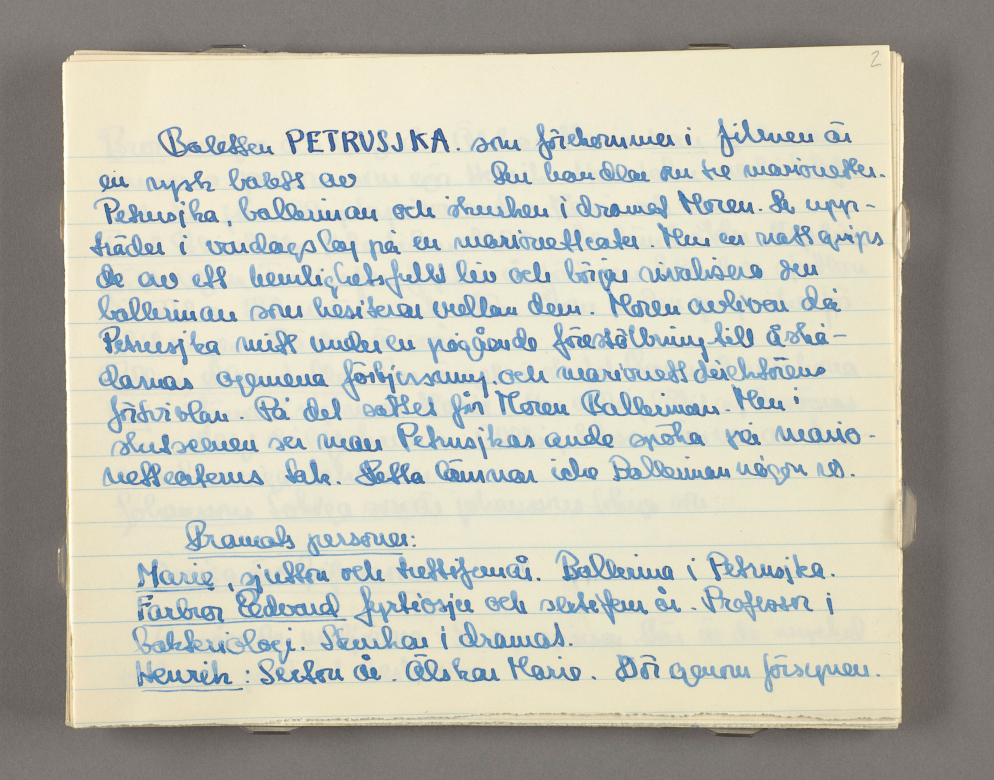 2
Baletten PETRUSJKA. som förekommer i filmen är
en rysk balett av Den handlar om tre marionetter.
Petrusjka, ballerinan och skurken i dramat Moren. De upp-
träder i vardagslag på en marionetteater. Men en natt grips
de av ett hemlighetsfullt liv och börjar rivalisera om
ballerinan som hesiterar mellan dem. Moren avlivar då
Petrusjka mitt under en pågående föreställning till åskå-
darnas ogemena förbjussning. och marionettdirektörens
förtvivlan. På det sättet får Moren Ballerinan. Men i
slutscenen ser man Petrusjkas ande spöka på mario-
netteaterns tak. Detta lämnar icke Ballerinan någon ro.
Dramats personer:
Marie, sjutton och trettifem år. Ballerina i Petrusjka.
Farbror Edvard fyrtiosju och sextifem år. Professor i
bakteriologi. Skurkan i dramat.
Henrik: Sexton år. Älskar Marie. Dör genom försynen.